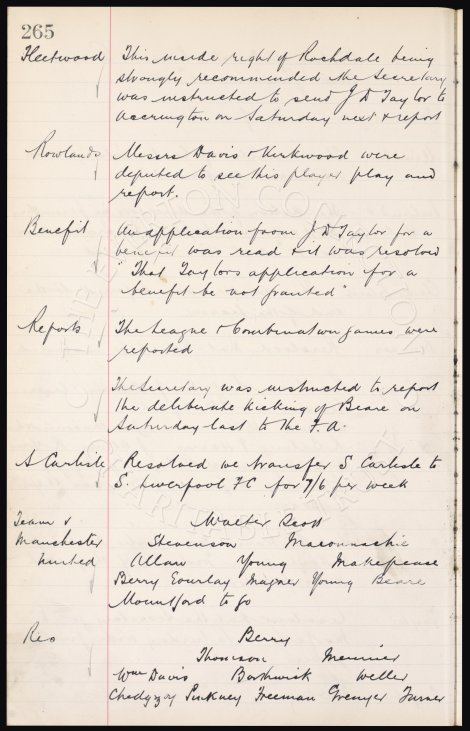 265
Fleetwood This inside right of Rochdale being
strongly recommended the Secretary
was instructed to send J D Taylor to
Accrington on Saturday next & report
Rowlands Messrs Davis & Kirkwood were
deputed to see this player play and
report.
Benefit An application from J D Taylor for a
benefit was read & it was resolved
"That Taylors application for a
benefit be not granted"
Reports The League & Combination games were
reported
The Secretary was instructed to report
the deliberate kicking of Beare on
Saturday last to the F.A.
S Carlisle Resolved we transfer S Carlisle to
S. Liverpool FC for 7/6 per week
Team v Walter Scott
Manchester Stevenson Maconnachie
United Allan Young Makepeace
Berry Gourlay Magner Young Beare
Mountford to go
Res Berry
Thomson Meunier
Wm Davis Borthwick Weller
Chedgzoy Pinkney Freeman Grenyer Turner